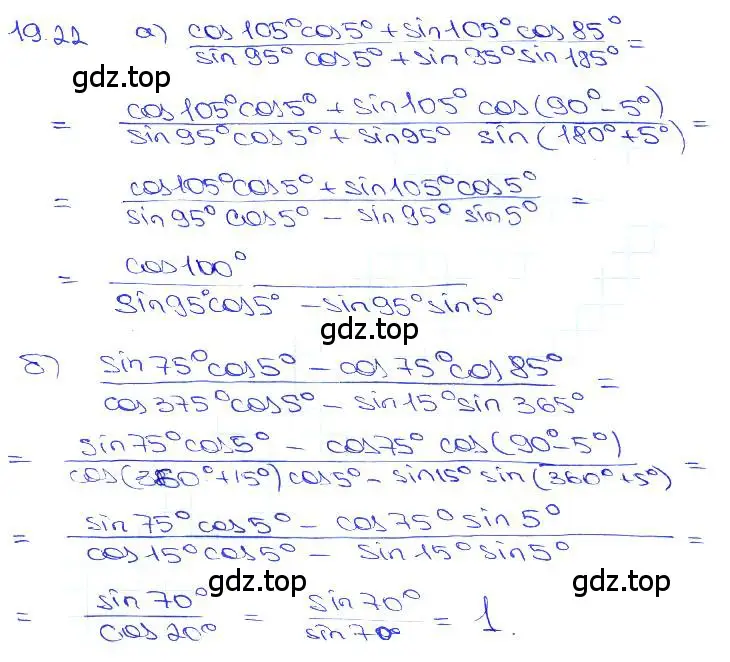 19.22 а) cos105°cos5° + sin105°cos85° / sin95° cos5° + sin95° sin185° =
gdz.top
= cos105°cos5° + sin105° cos(90°-5°) / sin95°cos5° + sin95° sin(180°+5°) =
= cos105°cos5° + sin105°cos5° / sin95°cos5° - sin95° sin5° =
= cos100° / sin95°cos5° - sin95°sin5°
gdz.top
б) sin75°cos5° - cos75°cos85° / cos375°cos5° - sin15°sin365° =
= sin75°cos5° - cos75° cos(90°-5°) / cos(360°+15°)cos5° - sin15° sin(360°+5°) =
= sin75°cos5° - cos75°sin5° / cos15°cos5° - sin15°sin5° =
gdz.top
= sin70° / cos20° = sin70° / sin70° = 1.